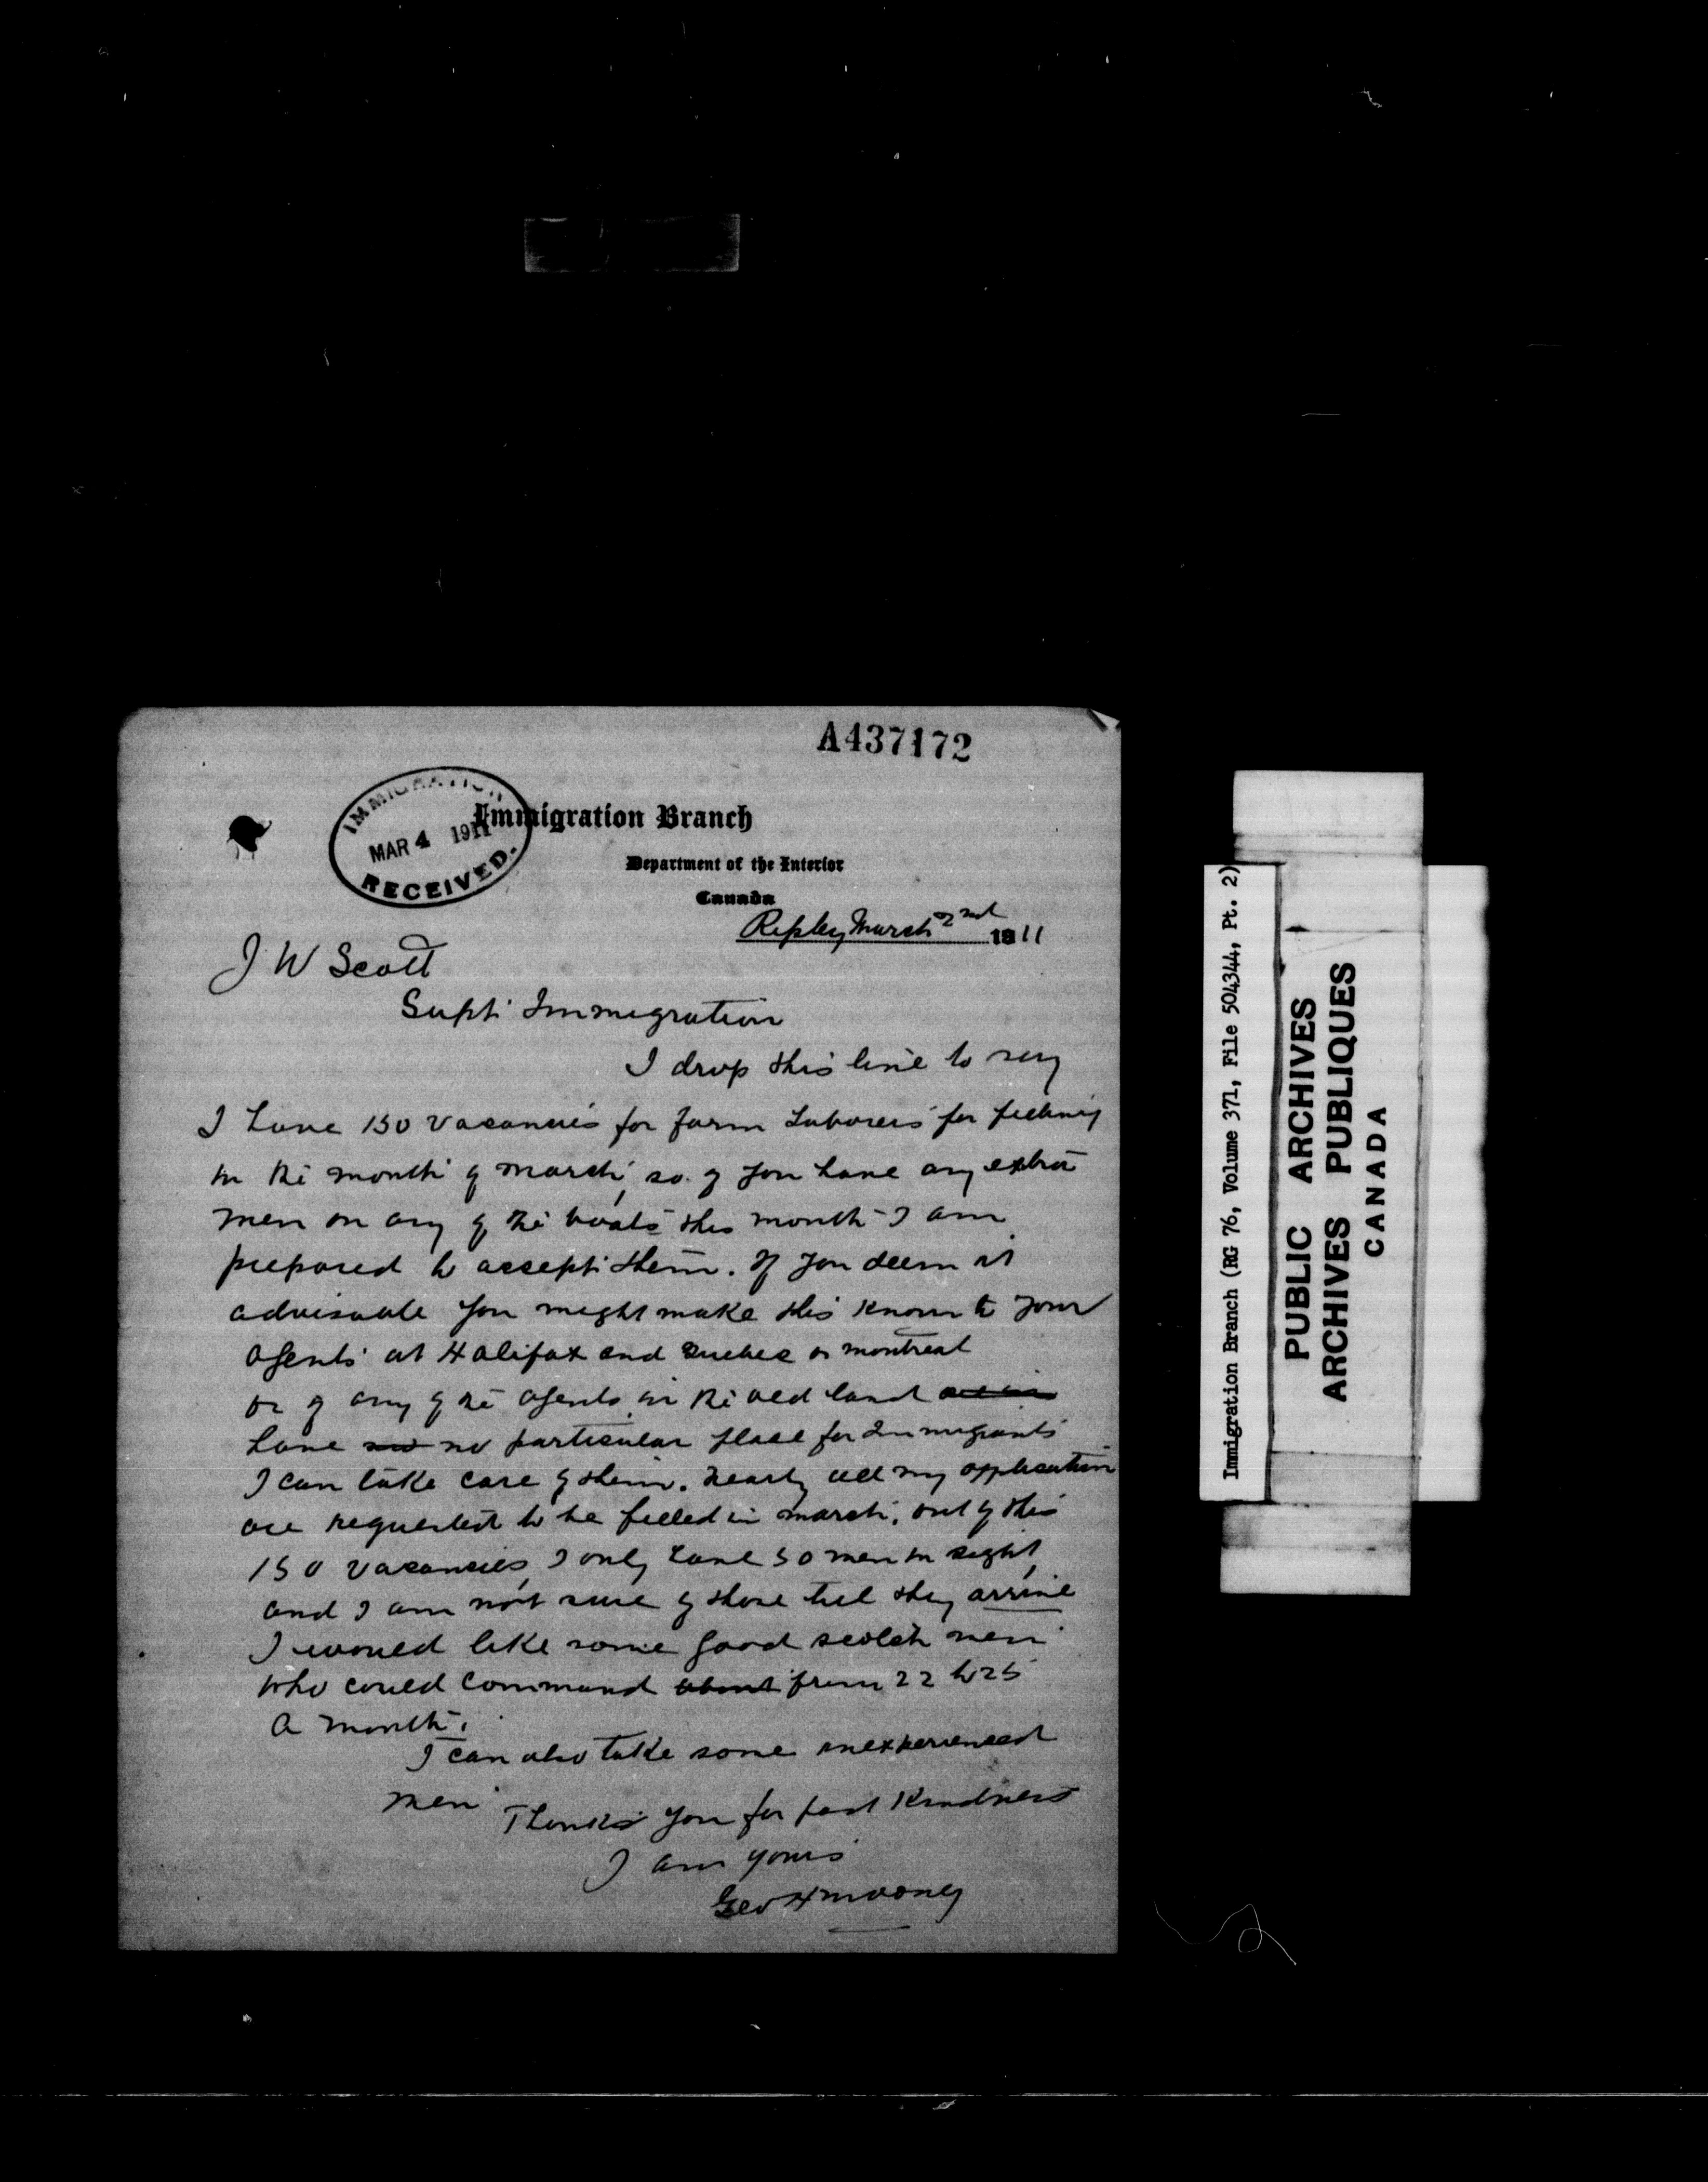 A437172
IMMIGRATION
MAR 4 1911
RECEIVED.
Immigration Branch
Department of the Interior
Canada
Ripley March 2nd 1911
J W Scott
Supt Immigration
I drop this line to say
I have 150 vacancies for farm Laborers for filling
in the month of march, so if you have any extra
men on any of the boats this month I am
prepared to accept them. If you deem it
advisable you might make this known to your
agents at Halifax and Quebec or montreal
or if any of the agents in the old land
have no particular place for Immigrants
I can take care of them. nearly all my application
are requested to be filled in march. out of this
150 vacancies I only have 50 men in sight
and I am not sure of those till they arrive
I would like some good scotch men
who could command about from 22 to 25
a month.
I can also take some inexperienced
men
Thanks you for past Kindness
I am yours
Geo H mooney
Immigration Branch (RG 76, Volume 371, File 504344, Pt. 2)
PUBLIC ARCHIVES
ARCHIVES PUBLIQUES
CANADA